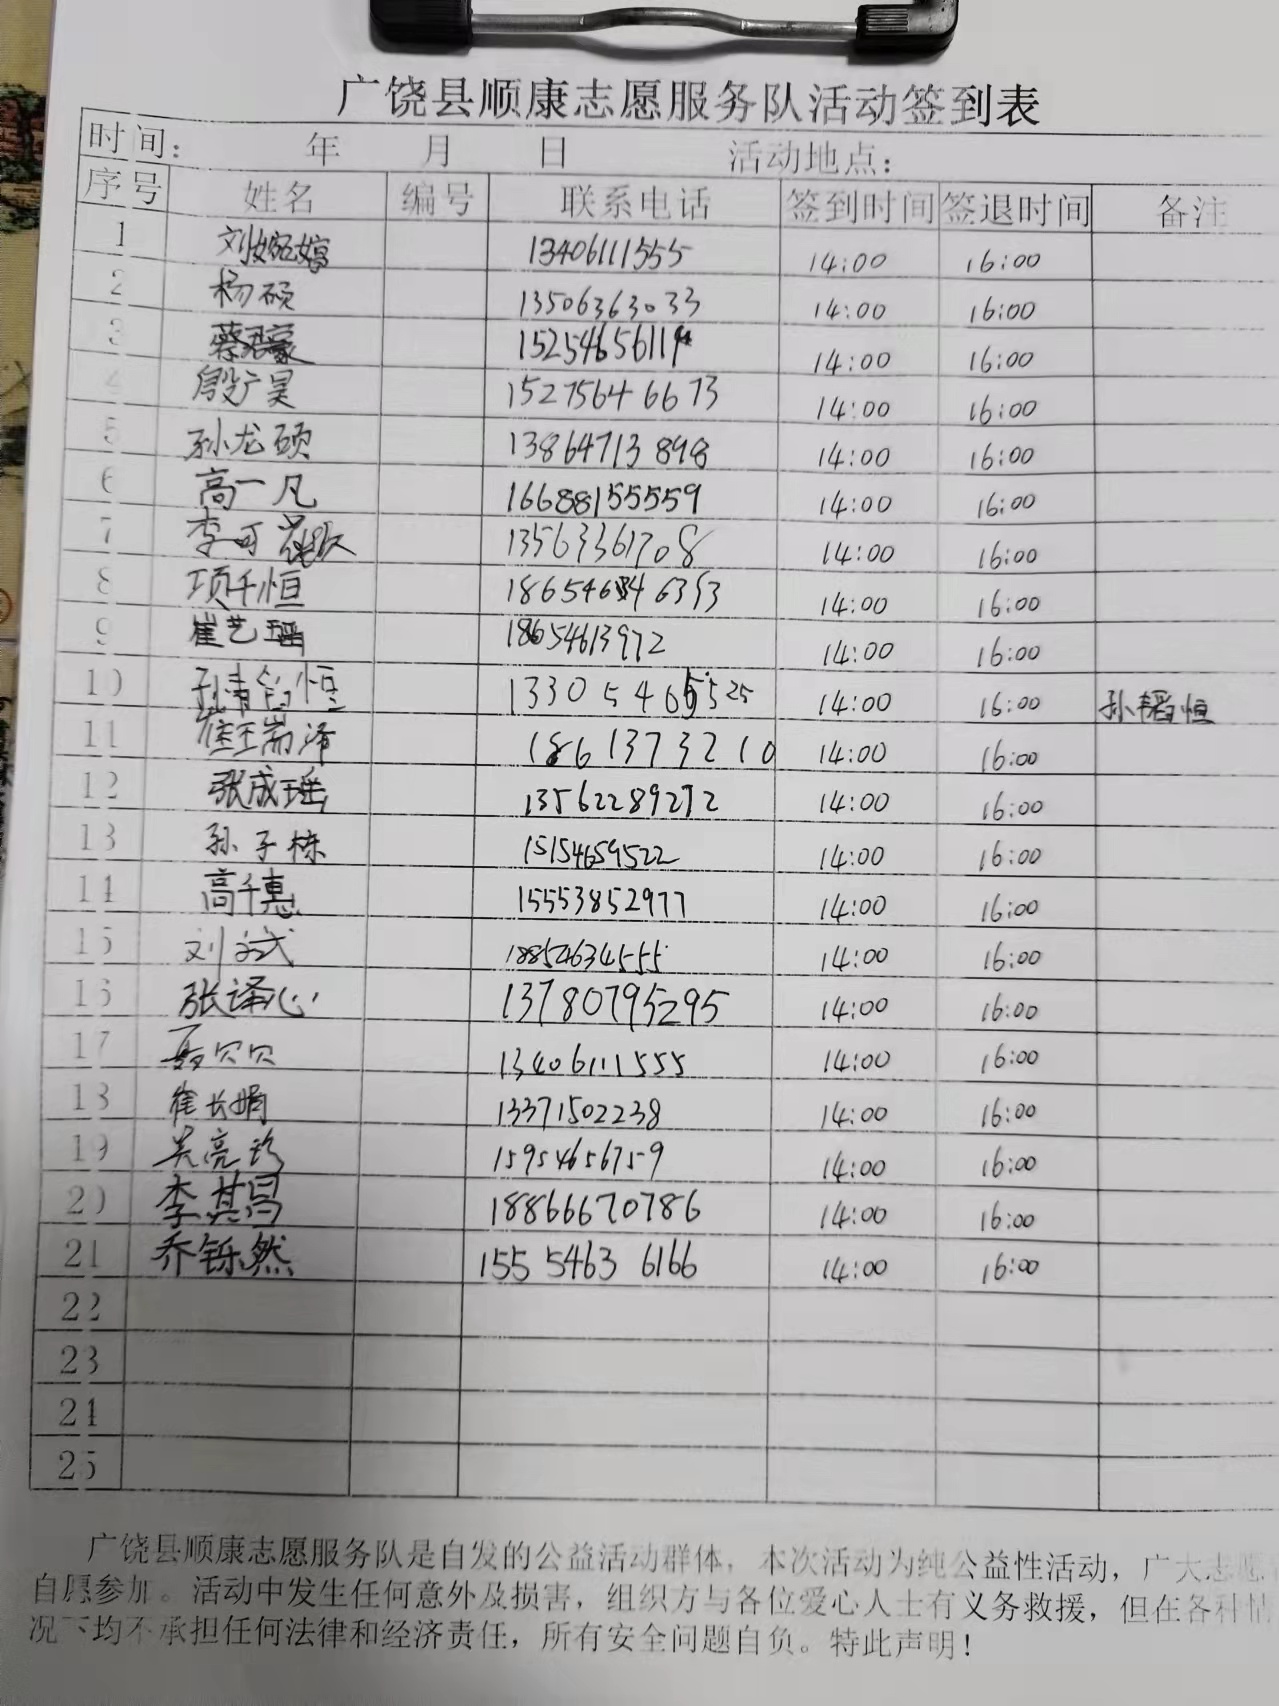 广饶县顺康志愿服务队活动签到表
时间: 年 月 日 活动地点:
序号 姓名 编号 联系电话 签到时间 签退时间 备注
1 刘婉婷 13406111555 14:00 16:00
2 杨硕 13506363033 14:00 16:00
3 蔡君豪 1525465611 14:00 16:00
4 殷广昊 15275646673 14:00 16:00
5 孙龙硕 13864713898 14:00 16:00
6 高一凡 16688155559 14:00 16:00
7 李可 13563361708 14:00 16:00
8 项千恒 14:00 16:00
9 崔艺瑶 18654613972 14:00 16:00
10 13305465525 14:00 16:00 孙韬恒
11 崔瑞泽 1861373210 14:00 16:00
12 张成瑶 13562289272 14:00 16:00
13 孙子栋 15154659522 14:00 16:00
14 高千惠 15553852977 14:00 16:00
15 刘斌 18852634555 14:00 16:00
16 张译心 13780795295 14:00 16:00
17 13406111555 14:00 16:00
18 崔长娟 13371502238 14:00 16:00
19 吴亮珍 15954656759 14:00 16:00
20 李其昌 18866670786 14:00 16:00
21 乔铄然 155 5463 6166 14:00 16:00
22
23
24
25
广饶县顺康志愿服务队是自发的公益活动群体，本次活动为纯公益性活动，广大志愿
自愿参加。活动中发生任何意外及损害，组织方与各位爱心人士有义务救援，但在各种情
况下均不承担任何法律和经济责任，所有安全问题自负。特此声明！